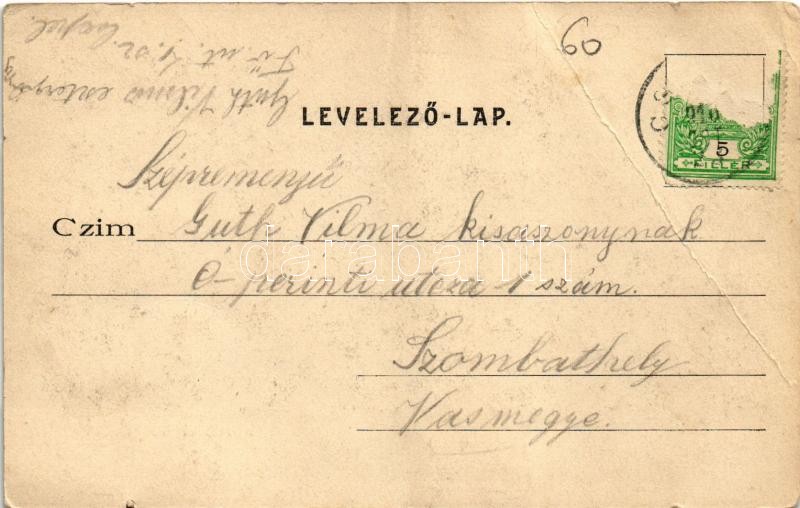 60
LEVELEZŐ-LAP.
5
FILLÉR
Szépremenyű
Czim Guth Vilma kisaszonynak
Ó-perinti utcza 1 szám.
Szombathely
Vasmegye.
darabanth
Guth Vilmos